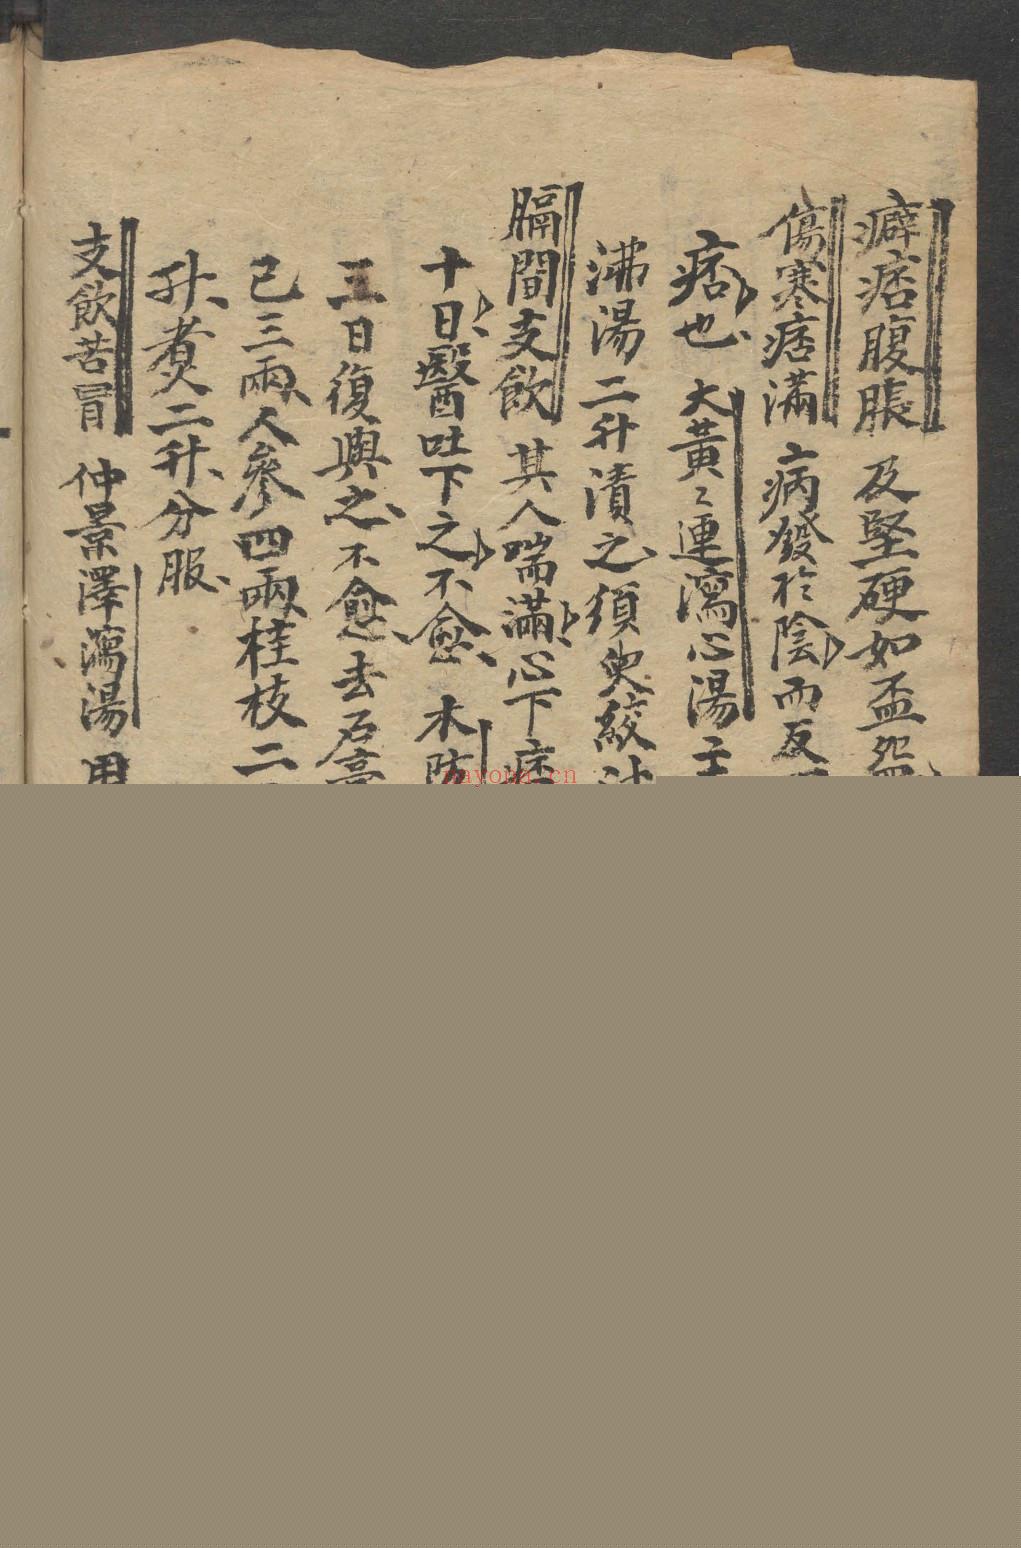 癖痞腹脹 及堅硬如盃
傷寒痞滿 病發於陰而反
痞也 大黃〻連瀉心湯
沸湯二升漬之須臾絞
膈間支飲 其人喘滿心下痞
十日醫吐下之不愈 木防
三日復與之不愈去石膏
已三兩人參四兩桂枝二
升煑二升分服
支飲苦冒 仲景澤瀉湯 用
nayona.cn